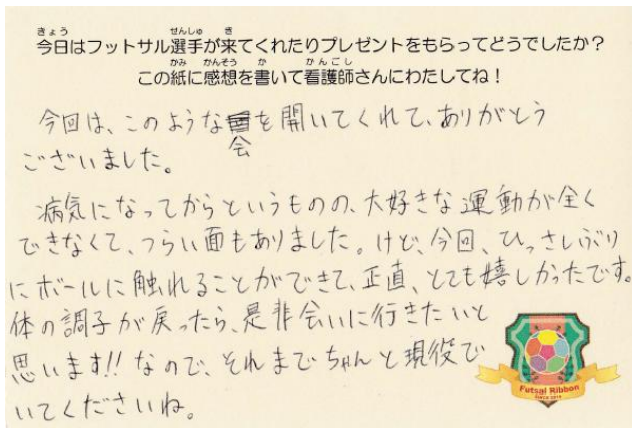 今日はフットサル選手が来てくれたりプレゼントをもらってどうでしたか？
この紙に感想を書いて看護師さんにわたしてね！
今回は、このような会を開いてくれて、ありがとう
ございました。
病気になってからというものの、大好きな運動が全く
できなくて、つらい面もありました。けど、今回、ひっさしぶり
にボールに触れることができて、正直、とても嬉しかったです。
体の調子が戻ったら、是非会いに行きたいと
思います!! なので、それまでちゃんと現役で
いてくださいね。
Futsal Ribbon
SINCE 2010